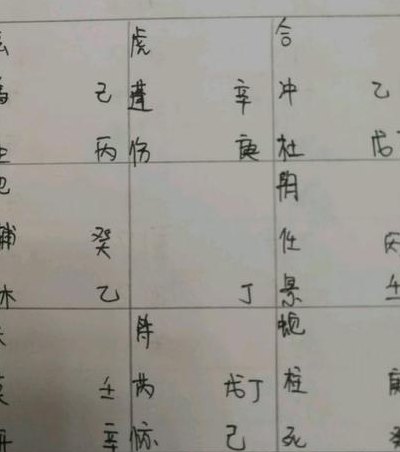 虎 合
己 蓬 辛 冲 乙
丙 伤 庚 杜 戊
阴
辅 癸 任 丙
休 乙 丁 景 壬
阵 蛇
壬 芮 戊丁 柱 庚
辛 惊 己 死 癸